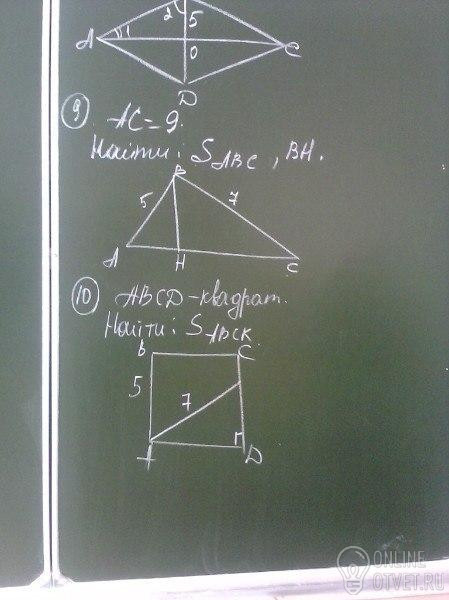 2
5
A
1
O
C
D
9
AC = 9.
Найти: S ABC, BH.
B
5
7
A
H
C
10
ABCD - квадрат.
Найти: S ABCK
B
C
5
7
A
D
ONLINE
OTVET.RU